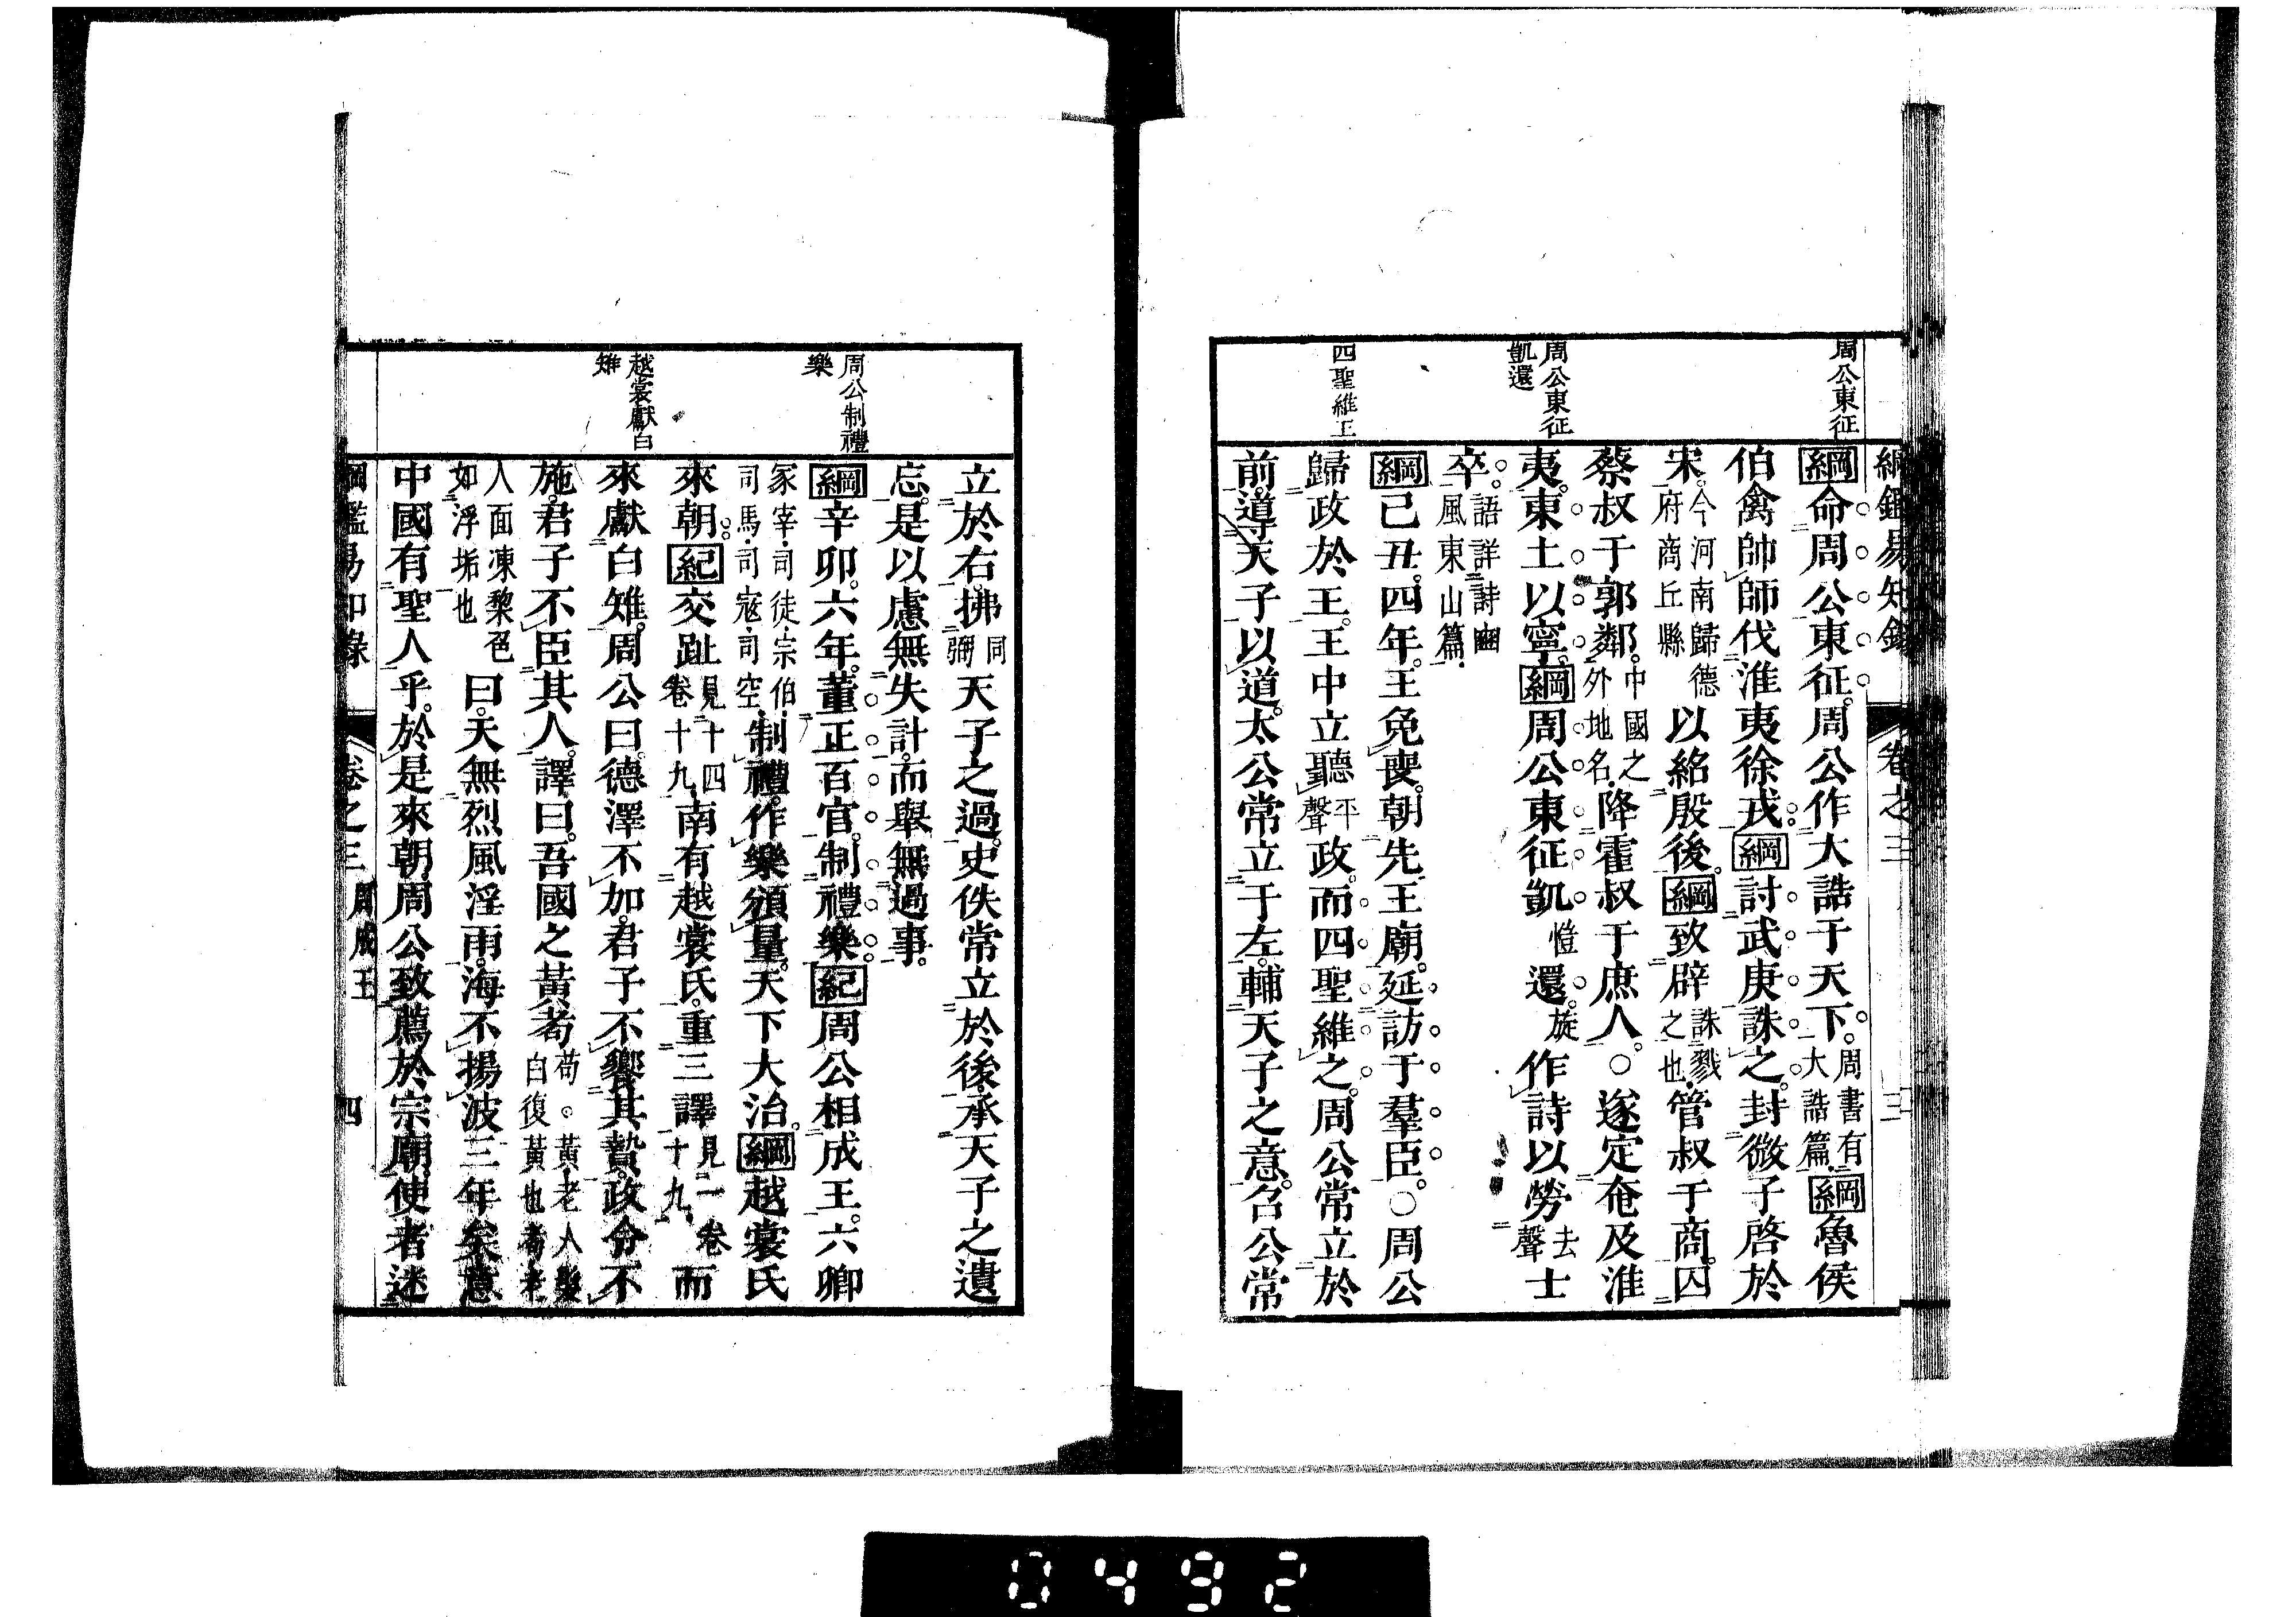 綱鑑易知錄 卷之三 三
周公東征
綱命周公東征。周公作大誥于天下。周書有大誥篇。綱魯侯
伯禽帥師伐淮夷徐戎。綱討武庚誅之。封微子啓於
宋。今河南歸德府商丘縣以紹殷後。綱致辟誅戮之也。管叔于商。囚
蔡叔于郭鄰。中國之外地名。降霍叔于庶人。○遂定奄及淮
周公東征凱還
夷。東土以寧。綱周公東征凱愷還。旋作詩以勞去聲士
卒。語詳詩豳風東山篇。
綱己丑。四年。王免喪。朝先王廟。延訪于羣臣。○周公
四聖維王
歸政於王。王中立聽平聲政。而四聖維之。周公常立於
前。道天子以道。太公常立于左。輔天子之意。召公常
立於右。拂同弼天子之過。史佚常立於後。承天子之遺
忘。是以慮無失計。而舉無過事。
周公制禮樂
綱辛卯。六年。董正百官。制禮樂。紀周公相成王。六卿
冢宰・司徒・宗伯・司馬・司寇・司空・制禮。作樂。頒量。天下大治。綱越裳氏
來朝。紀交趾見十四卷十九南有越裳氏。重三譯見一卷十九而
越裳獻白雉
來獻白雉。周公曰。德澤不加。君子不饗其贄。政令不
施。君子不臣其人。譯曰。吾國之黃耇苟。黃老人髮白復黃也耇老
人面凍黎色如浮垢也曰。天無烈風淫雨。海不揚波三年矣。意
中國有聖人乎。於是來朝。周公致薦於宗廟。使者迷
綱鑑易知錄 卷之三 周成王 四
0492